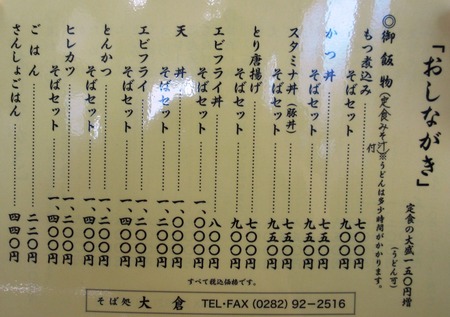 「おしながき」
定食の大盛一五〇円増
(うどん可)
◎御飯物(定食みそ汁付)※うどんは多少時間がかかります。
もつ煮込み……七〇〇円
そばセット……九〇〇円
かつ丼……七五〇円
そばセット……九五〇円
スタミナ丼(豚丼)……七五〇円
そばセット……九五〇円
とり唐揚げ……七〇〇円
そばセット……九〇〇円
エビフライ丼……八〇〇円
そばセット……一、〇〇〇円
天丼……一、〇〇〇円
そばセット……一、二〇〇円
エビフライ……一、〇〇〇円
そばセット……一、二〇〇円
とんかつ……一、二〇〇円
そばセット……一、四〇〇円
ヒレカツ……一、二〇〇円
そばセット……一、四〇〇円
ごはん……二二〇円
さんしょごはん……四四〇円
すべて税込価格です。
そば処 大倉 TEL・FAX (0282) 92-2516